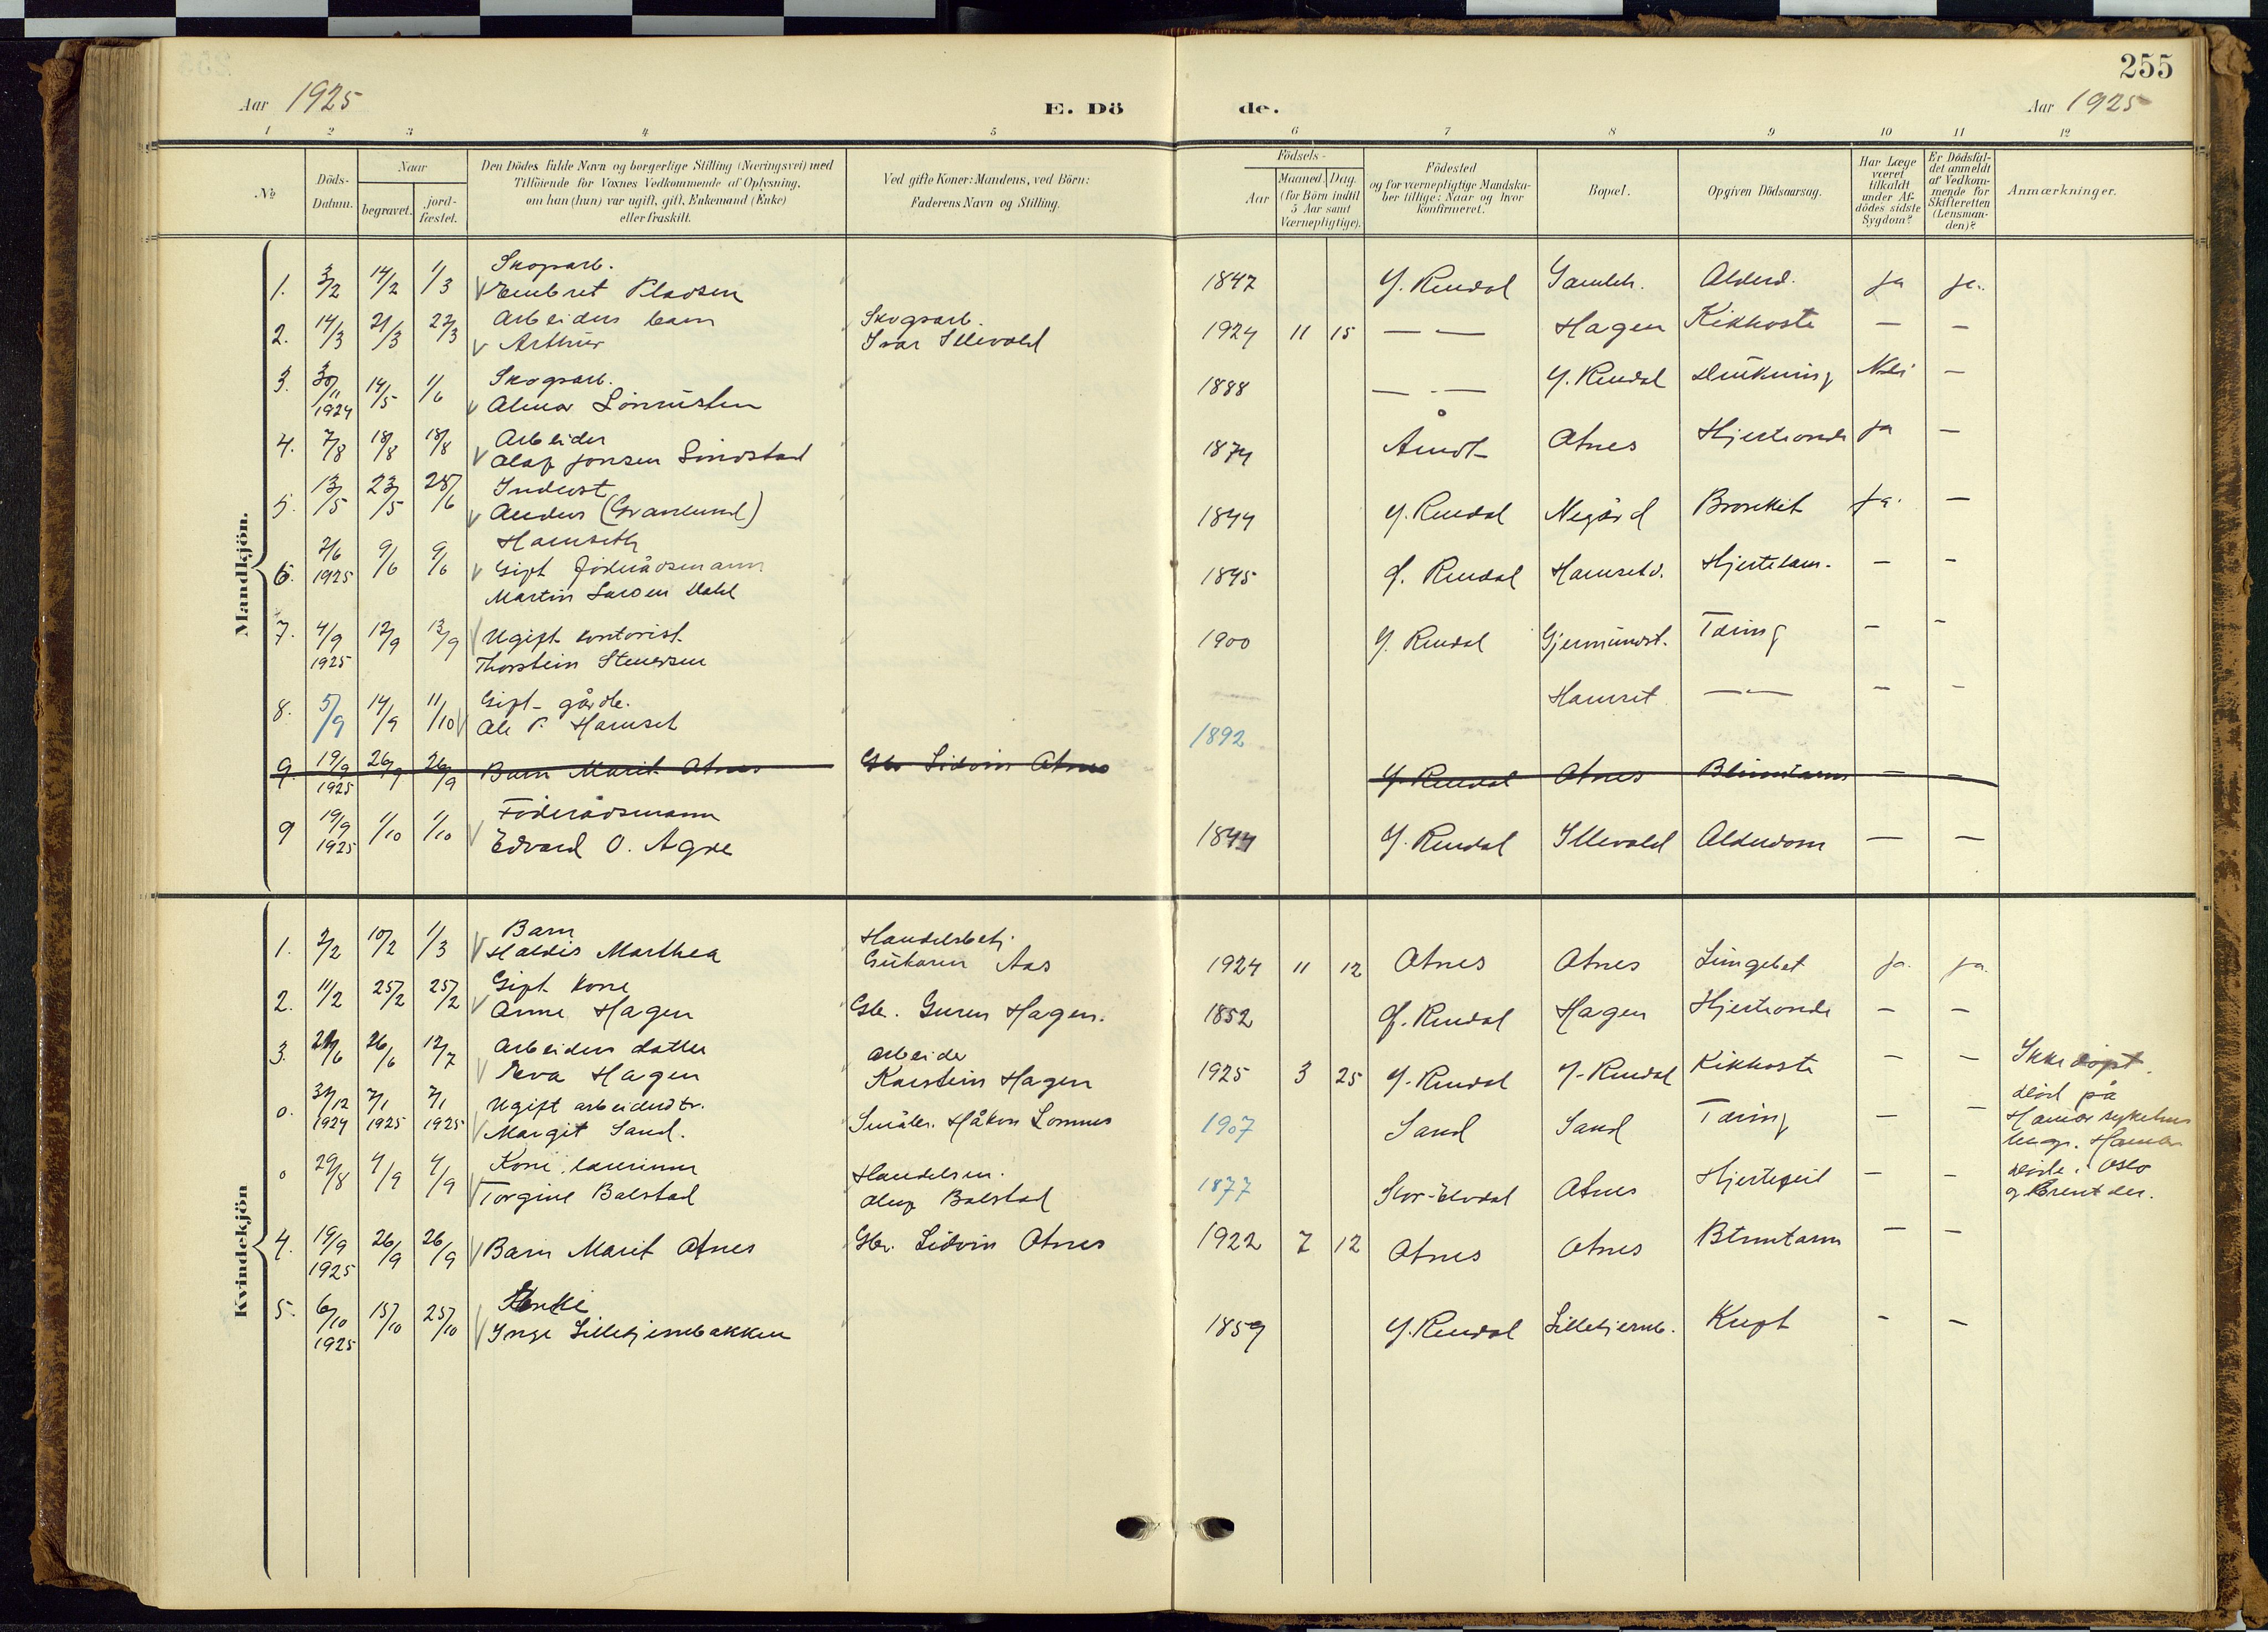 255
Aar 1925
E. Dö
de.
Aar 1925
1 2 3 4 5 6 7 8 9 10 11 12
No
Döds-
Datum.
Naar
begravet.
jord-
fæstet.
Den Dödes fulde Navn og borgerlige Stilling (Næringsvei) med
Tilföiende for Voxnes Vedkommende af Oplysning,
om han (hun) var ugift, gift, Enkemand (Enke)
eller fraskilt.
Ved gifte Koner: Mandens, ved Börn:
Faderens Navn og Stilling.
Födsels-
Aar
Maaned. Dag.
(for Börn indtil
5 Aar samt
Værnepligtige).
Födested
og for værnepligtige Mandska-
ber tillige: Naar og hvor
konfirmeret.
Bopæl.
Opgiven Dödsaarsag.
Har Læge
været
tilkaldt
under Af-
dödes sidste
Sygdom?
Er Dödsfal-
det anmeldt
af Vedkom-
mende for
Skifteretten
(Lensman-
den)?
Anmærkninger.
Mandkjön.
1. 3/2 14/2 1/3 Skogarb.
Embret Pladsen 1847 Y. Rendal Alderd. ja ja.
2. 14/3 21/3 22/3 Arbeiders barn
Arthur
Skogsarb.
Ivar Illevold 1924 11 15 — — Hagen Kikhoste — —
3. 30/11 1924 14/5 1/6 Skogsarb.
Almar 1888 — — Y. Rendal Drukning Nei —
4. 7/8 18/8 18/8 Arbeider
Olaf Jonsen 1874 Åmot Atnes Hjerteonde ja —
5. 13/5 23/5 28/6 Inderst
Anders (Granlund) 1844 Y. Rendal Negård Bronkit ja. —
6. 2/6 1925 9/6 9/6 Hamseth
Gift föderådsmann
Martin Larsen Dahl 1845 Y. Rendal Hamsetd. Hjertelam. — —
7. 4/9 1925 12/9 13/9 Ugift kontorist
Thorstein Stenersen 1900 Y. Rendal Gjermundst. Tæring — —
8. 5/9 14/9 11/10 Gift gårdb.
Ole P. Hamset 1892 Hamset — — — —
9. 19/9 1925 26/9 26/9 Barn Marit Atnes Gbr Sidvin Atnes Y. Rendal Atnes Blindtarm — —
9 19/9 1925 1/10 1/10 Föderådsmann
Edvard O. Agre 1844 Y. Rendal Illevold Alderdom — —
Kvindekjön
1. 2/2 10/2 1/3 Barn
Haldis Marthea
Handelsbetj.
Aas 1924 11 12 Atnes Atnes Lungebet ja. ja.
2. 11/2 25/2 25/2 Gift kone
Anne Hagen Gbr. Hagen. 1852 Y. Rendal Hagen Hjerteonde — —
3. 21/6 26/6 12/7 Arbeiders datter
Eva Hagen
arbeider
Karstein Hagen 1925 3 25 Y. Rendal Y. Rendal Kikhoste — — Ikke döpt.
0. 31/12 1924 7/1 1925 7/1 1925 Ugift arbeiderdtr.
Margit Sand. Småbr. Håkon Lomnes 1907 Sand Sand Tæring — — död på
Hamar sykehus
Hamar
0 29/8 4/9 4/9 Kone
Torgine Balstad
Handelsm.
Oluf Balstad 1877 Stor-Elvdal Atnes Hjertefeil — — döde i Oslo
og brent der.
4. 19/9 1925 26/9 26/9 Barn Marit Atnes Gbr. Sidvin Atnes 1922 7 12 Atnes Atnes Blindtarm — —
5. 6/10 1925 15/10 25/10 Enke
Inge Lilletjernbakken 1859 Y. Rendal Lilletjernb. Kræft — —